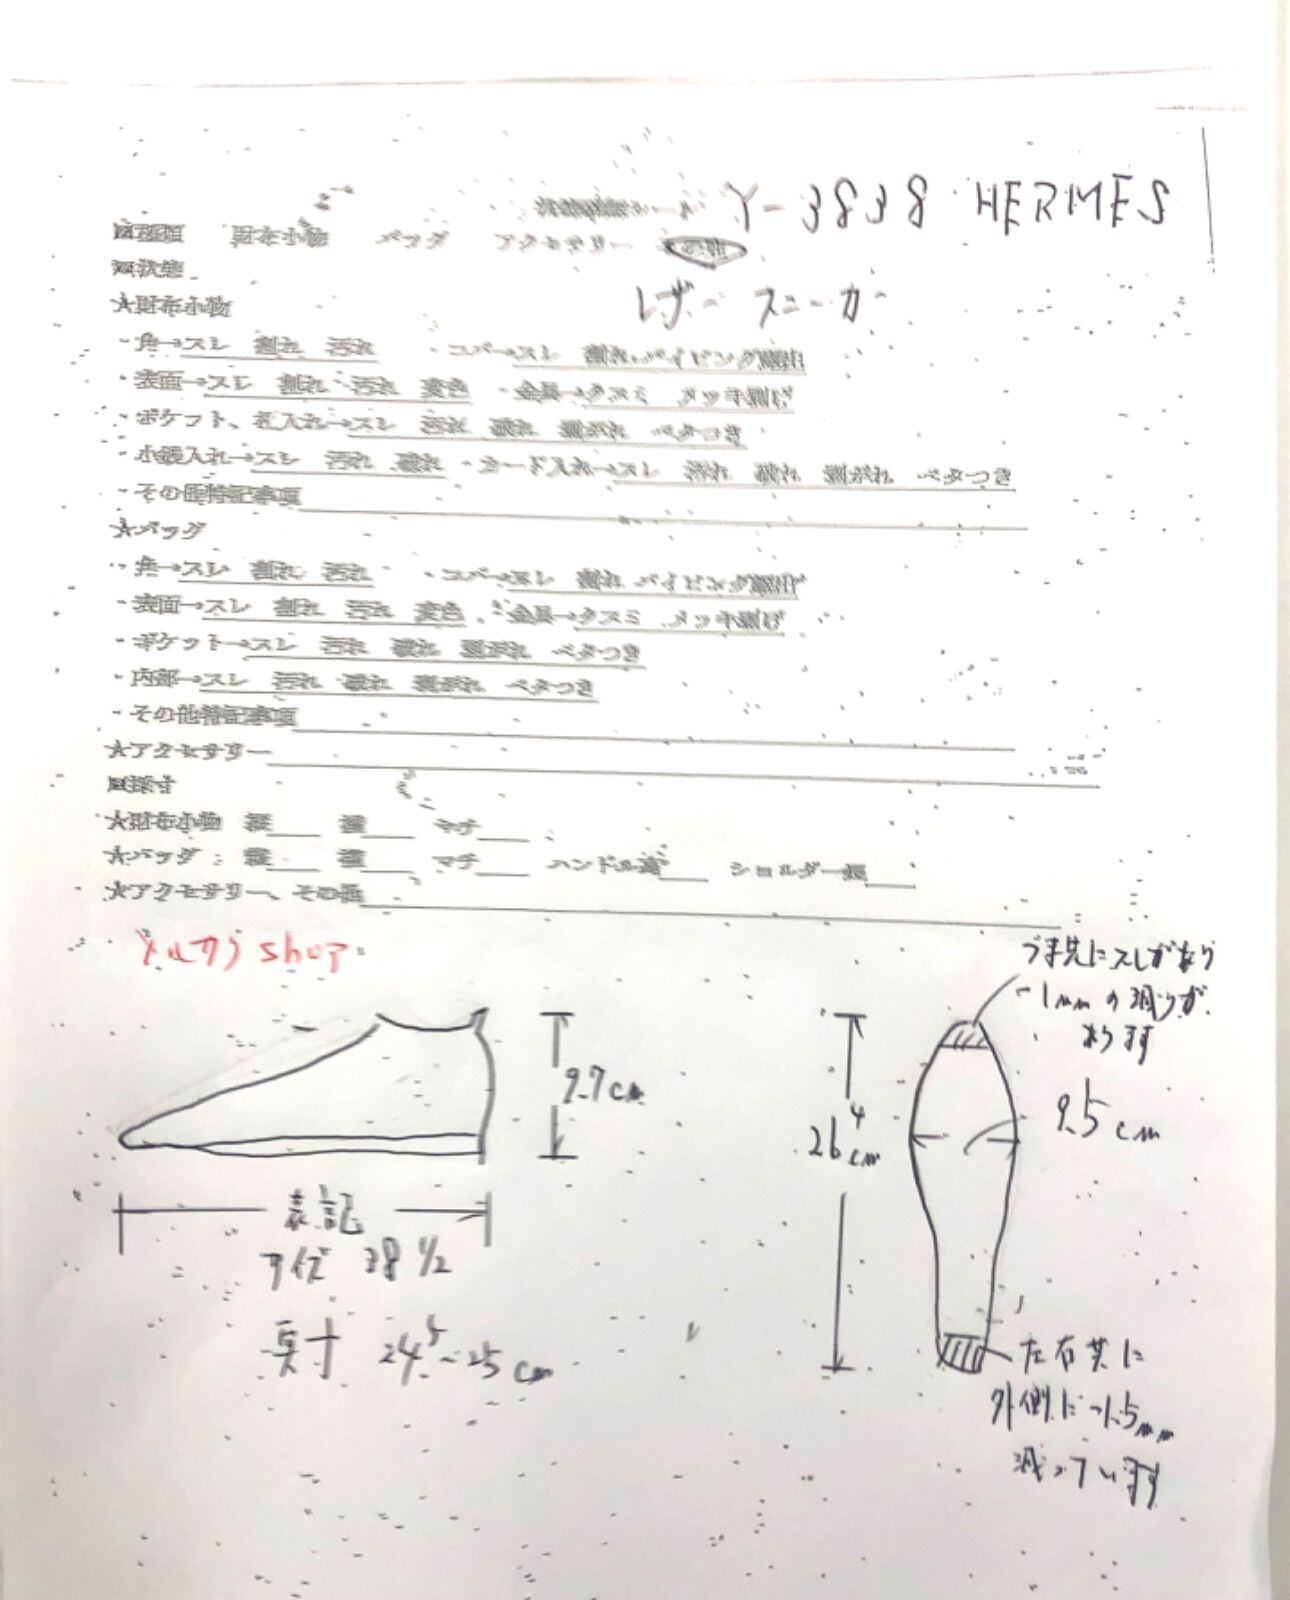 Y-3838 HERMES
財布小物 バッグ アクセサリー
状態
レザー スニーカー
★財布小物
・角→スレ 割れ 汚れ ・コバ→スレ 割れ パイピング
・表面→スレ 割れ 汚れ 変色 ・金具→クスミ メッキ剥げ
・ポケット、札入れ→スレ 汚れ 破れ 剥がれ ベタつき
・小銭入れ→スレ 汚れ 破れ ・カード入れ→スレ 汚れ 破れ 剥がれ ベタつき
・その他特記事項
★バッグ
・角→スレ 割れ 汚れ ・コバ→スレ 割れ パイピング
・表面→スレ 割れ 汚れ 変色 ・金具→クスミ メッキ剥げ
・ポケット→スレ 汚れ 破れ 剥がれ ベタつき
・内部→スレ 汚れ 破れ 剥がれ ベタつき
・その他特記事項
★アクセサリー
採寸
★財布小物 縦 横 マチ
★バッグ: 縦 横 マチ ハンドル高 ショルダー長
★アクセサリー、その他
メルカリ shop
つま先にスレがあり
-1mmの減りが
あります
9.7cm
26⁴cm
9.5cm
表記
サイズ 38 1/2
実寸 24⁵~25cm
左右共に
外側に-1.5mm
減っています